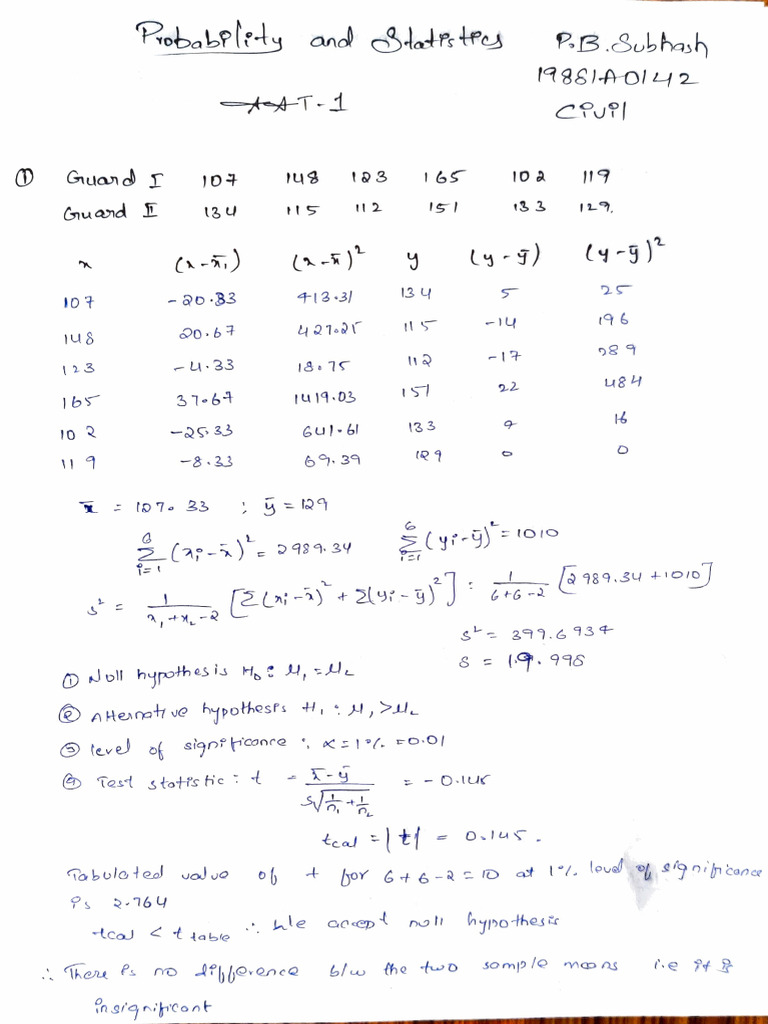 Probability and Statistics P.B.Subhash
19881A0142
AAT-1 Civil
① Guard I 107 148 123 165 102 119
Guard II 134 115 112 151 133 129.
x (x-x̄₁) (x-x̄)² y (y-ȳ) (y-ȳ)²
107 -20.33 413.31 134 5 25
148 20.67 427.25 115 -14 196
123 -4.33 18.75 112 -17 289
165 37.67 1419.03 151 22 484
102 -25.33 641.61 133 4 16
119 -8.33 69.39 129 0 0
x̄ = 127.33 ; ȳ = 129
6 Σ i=1 (xi-x̄)² = 2989.34 6 Σ i=1 (yi-ȳ)² = 1010
s² = 1/(x₁+x₂-2) [Σ(xi-x̄)² + Σ(yi-ȳ)²] = 1/(6+6-2) [2989.34 + 1010]
s² = 399.6934
s = 19.998
① Null hypothesis H₀ : μ₁ = μ₂
② Alternative hypothesis H₁ : μ₁ > μ₂
③ level of significance : α = 1% = 0.01
④ Test statistic : t = (x̄-ȳ)/(s√(1/n₁ + 1/n₂)) = -0.145
tcal = |t| = 0.145.
Tabulated value of t for 6+6-2=10 at 1% level of significance
is 2.764
tcal < t table ∴ We accept null hypothesis
∴ There is no difference b/w the two sample means i.e it is
insignificant